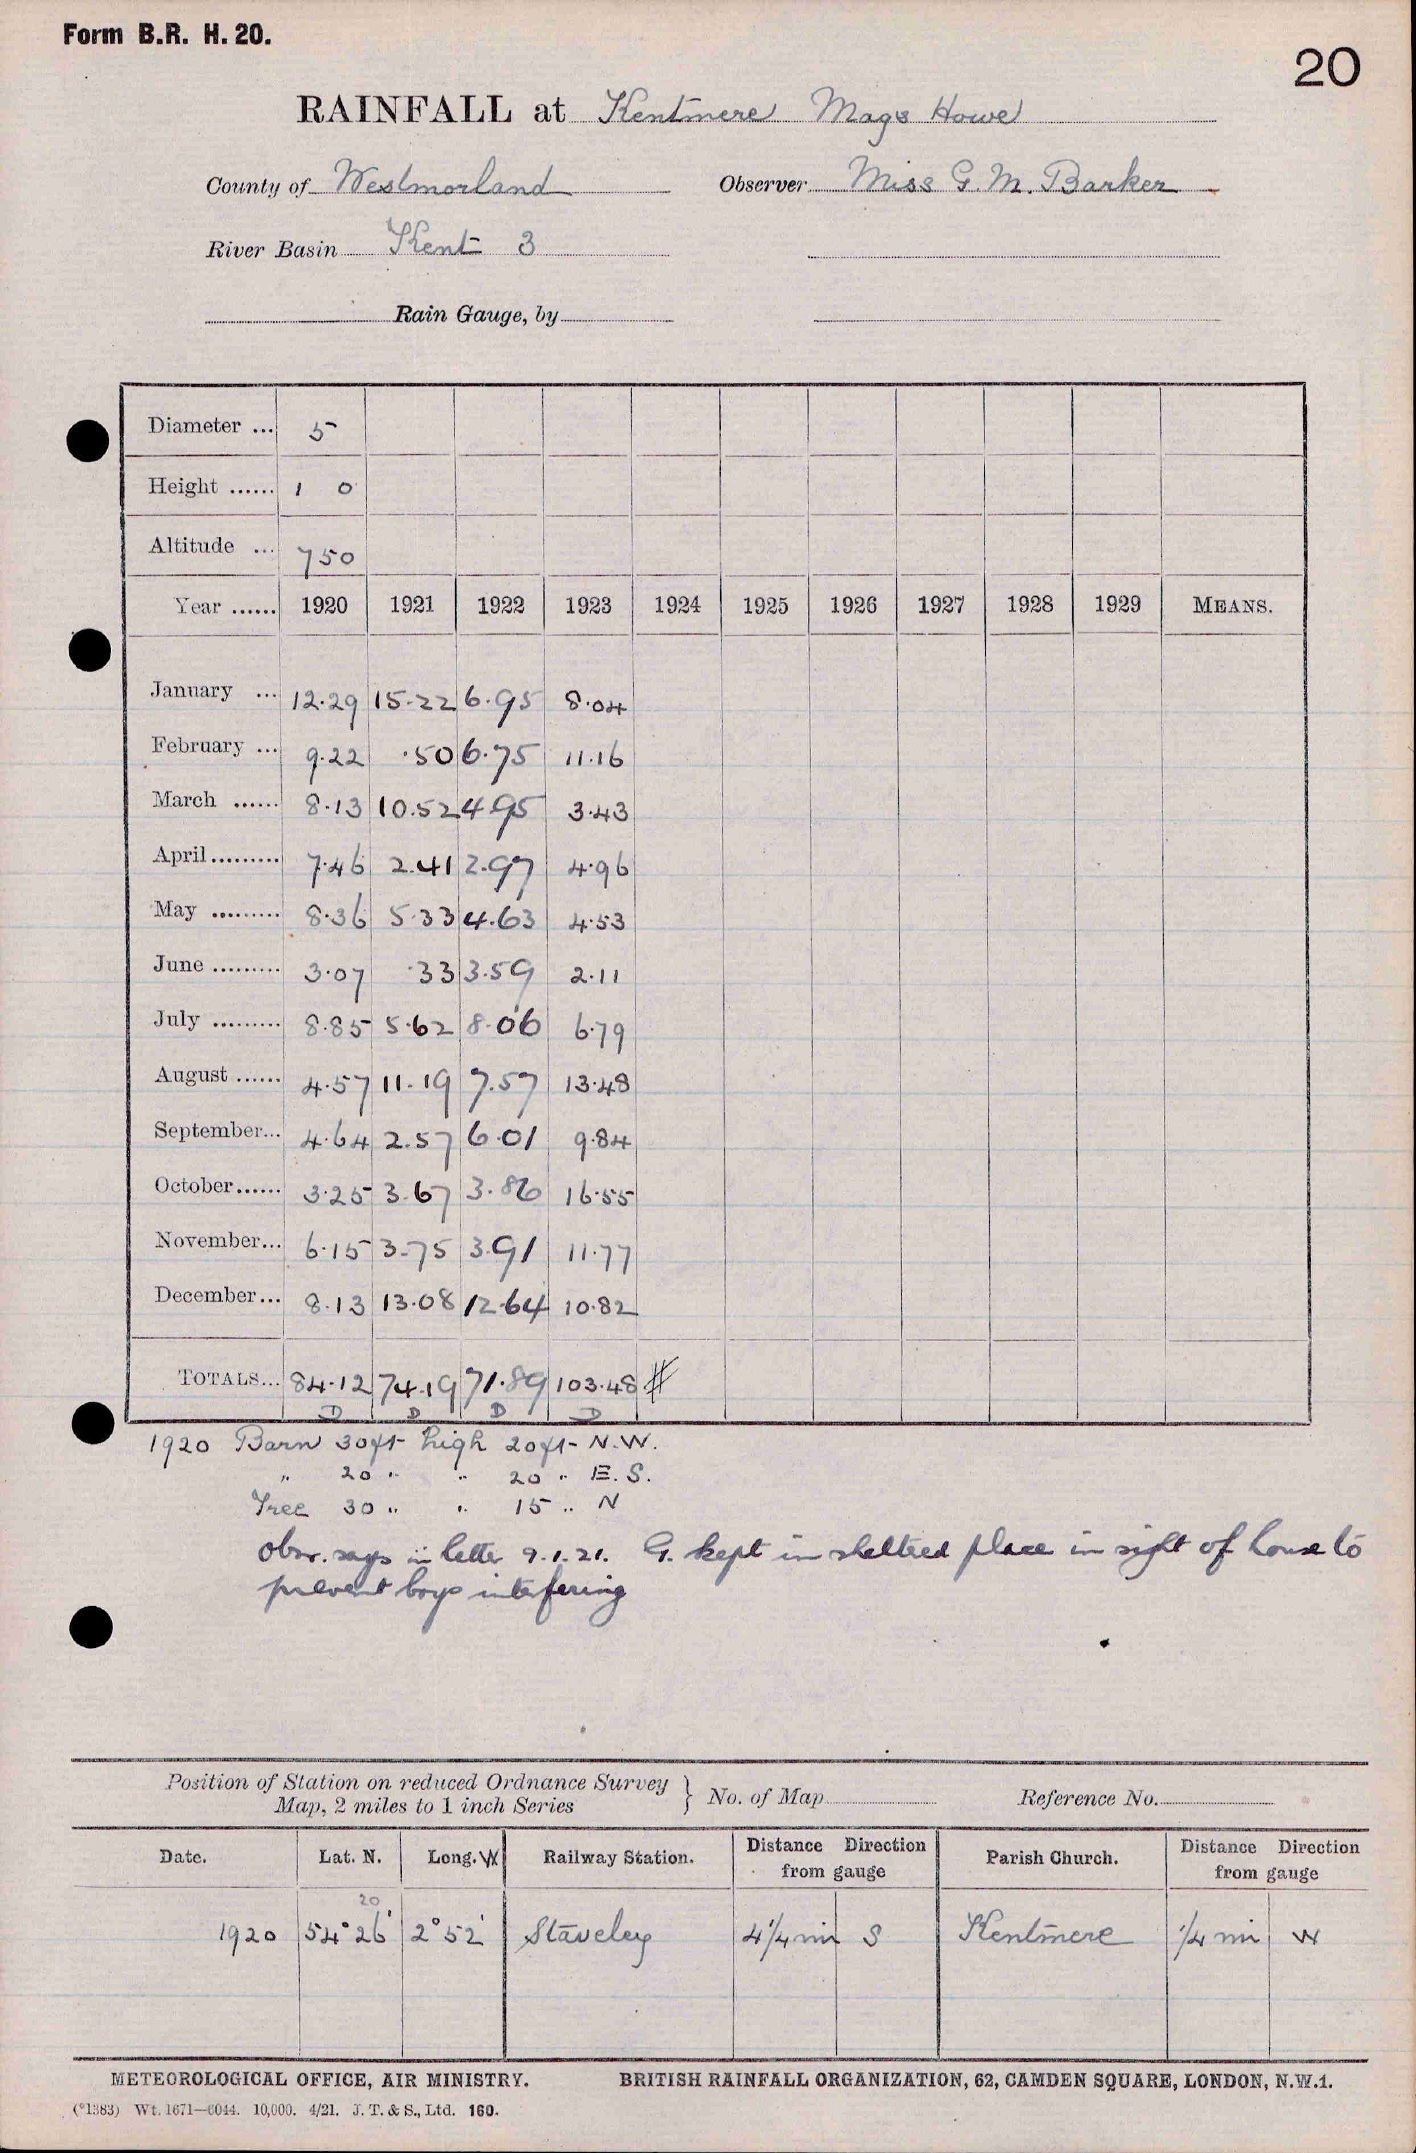 Form B.R. H. 20.
20
RAINFALL at Kentmere Mags Howe
County of Westmorland Observer Miss G. M. Barker
River Basin Kent 3
Rain Gauge, by
Diameter ... 5
Height ...... 1 0
Altitude ... 750
Year ...... 1920 1921 1922 1923 1924 1925 1926 1927 1928 1929 MEANS.
January ... 12.29 15.22 6.95 8.04
February ... 9.22 .50 6.75 11.16
March ...... 8.13 10.52 4.95 3.43
April ......... 7.46 2.41 2.97 4.96
May ......... 8.36 5.33 4.63 4.53
June ......... 3.07 .33 3.59 2.11
July ......... 8.85 5.62 8.06 6.79
August ...... 4.57 11.19 7.57 13.48
September... 4.64 2.57 6.01 9.84
October...... 3.25 3.67 3.86 16.55
November... 6.15 3.75 3.91 11.77
December... 8.13 13.08 12.64 10.82
TOTALS... 84.12 74.19 71.89 103.48 #
D D D D
1920 Barn 30ft high 20ft N.W.
" 20 " " 20 " E. S.
Tree 30 " " 15 " N
obsr. says in letter 9.1.21. G. kept in sheltered place in sight of house to
prevent boys interfering
Position of Station on reduced Ordnance Survey
Map, 2 miles to 1 inch Series } No. of Map Reference No.
Date. Lat. N. Long. W Railway Station. Distance Direction from gauge Parish Church. Distance Direction from gauge
20
1920 54° 26' 2° 52' Staveley 4 1/4 mi S Kentmere 1/4 mi W
METEOROLOGICAL OFFICE, AIR MINISTRY. BRITISH RAINFALL ORGANIZATION, 62, CAMDEN SQUARE, LONDON, N.W.1.
(*1383) Wt. 1671—6044. 10,000. 4/21. J. T. & S., Ltd. 160.